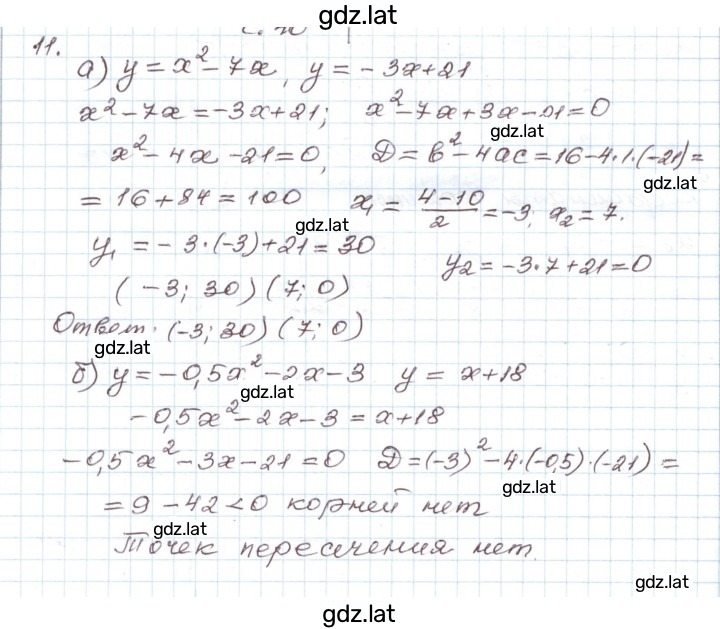 gdz.lat
11.
а) y = x² - 7x, y = - 3x + 21
x² - 7x = -3x + 21; x² - 7x + 3x - 21 = 0
gdz.lat
x² - 4x - 21 = 0, D = b² - 4ac = 16 - 4·1·(-21) =
gdz.lat
= 16 + 84 = 100 x₁ = (4-10)/2 = -3; x₂ = 7.
gdz.lat
y₁ = - 3·(-3) + 21 = 30
y₂ = -3·7 + 21 = 0
(-3; 30) (7; 0)
Ответ: (-3; 30) (7; 0)
gdz.lat
б) y = -0,5x² - 2x - 3 y = x + 18
gdz.lat
-0,5x² - 2x - 3 = x + 18
-0,5x² - 3x - 21 = 0 D = (-3)² - 4·(-0,5)·(-21) =
gdz.lat
= 9 - 42 < 0 корней нет
gdz.lat
Точек пересечения нет.
gdz.lat
gdz.lat